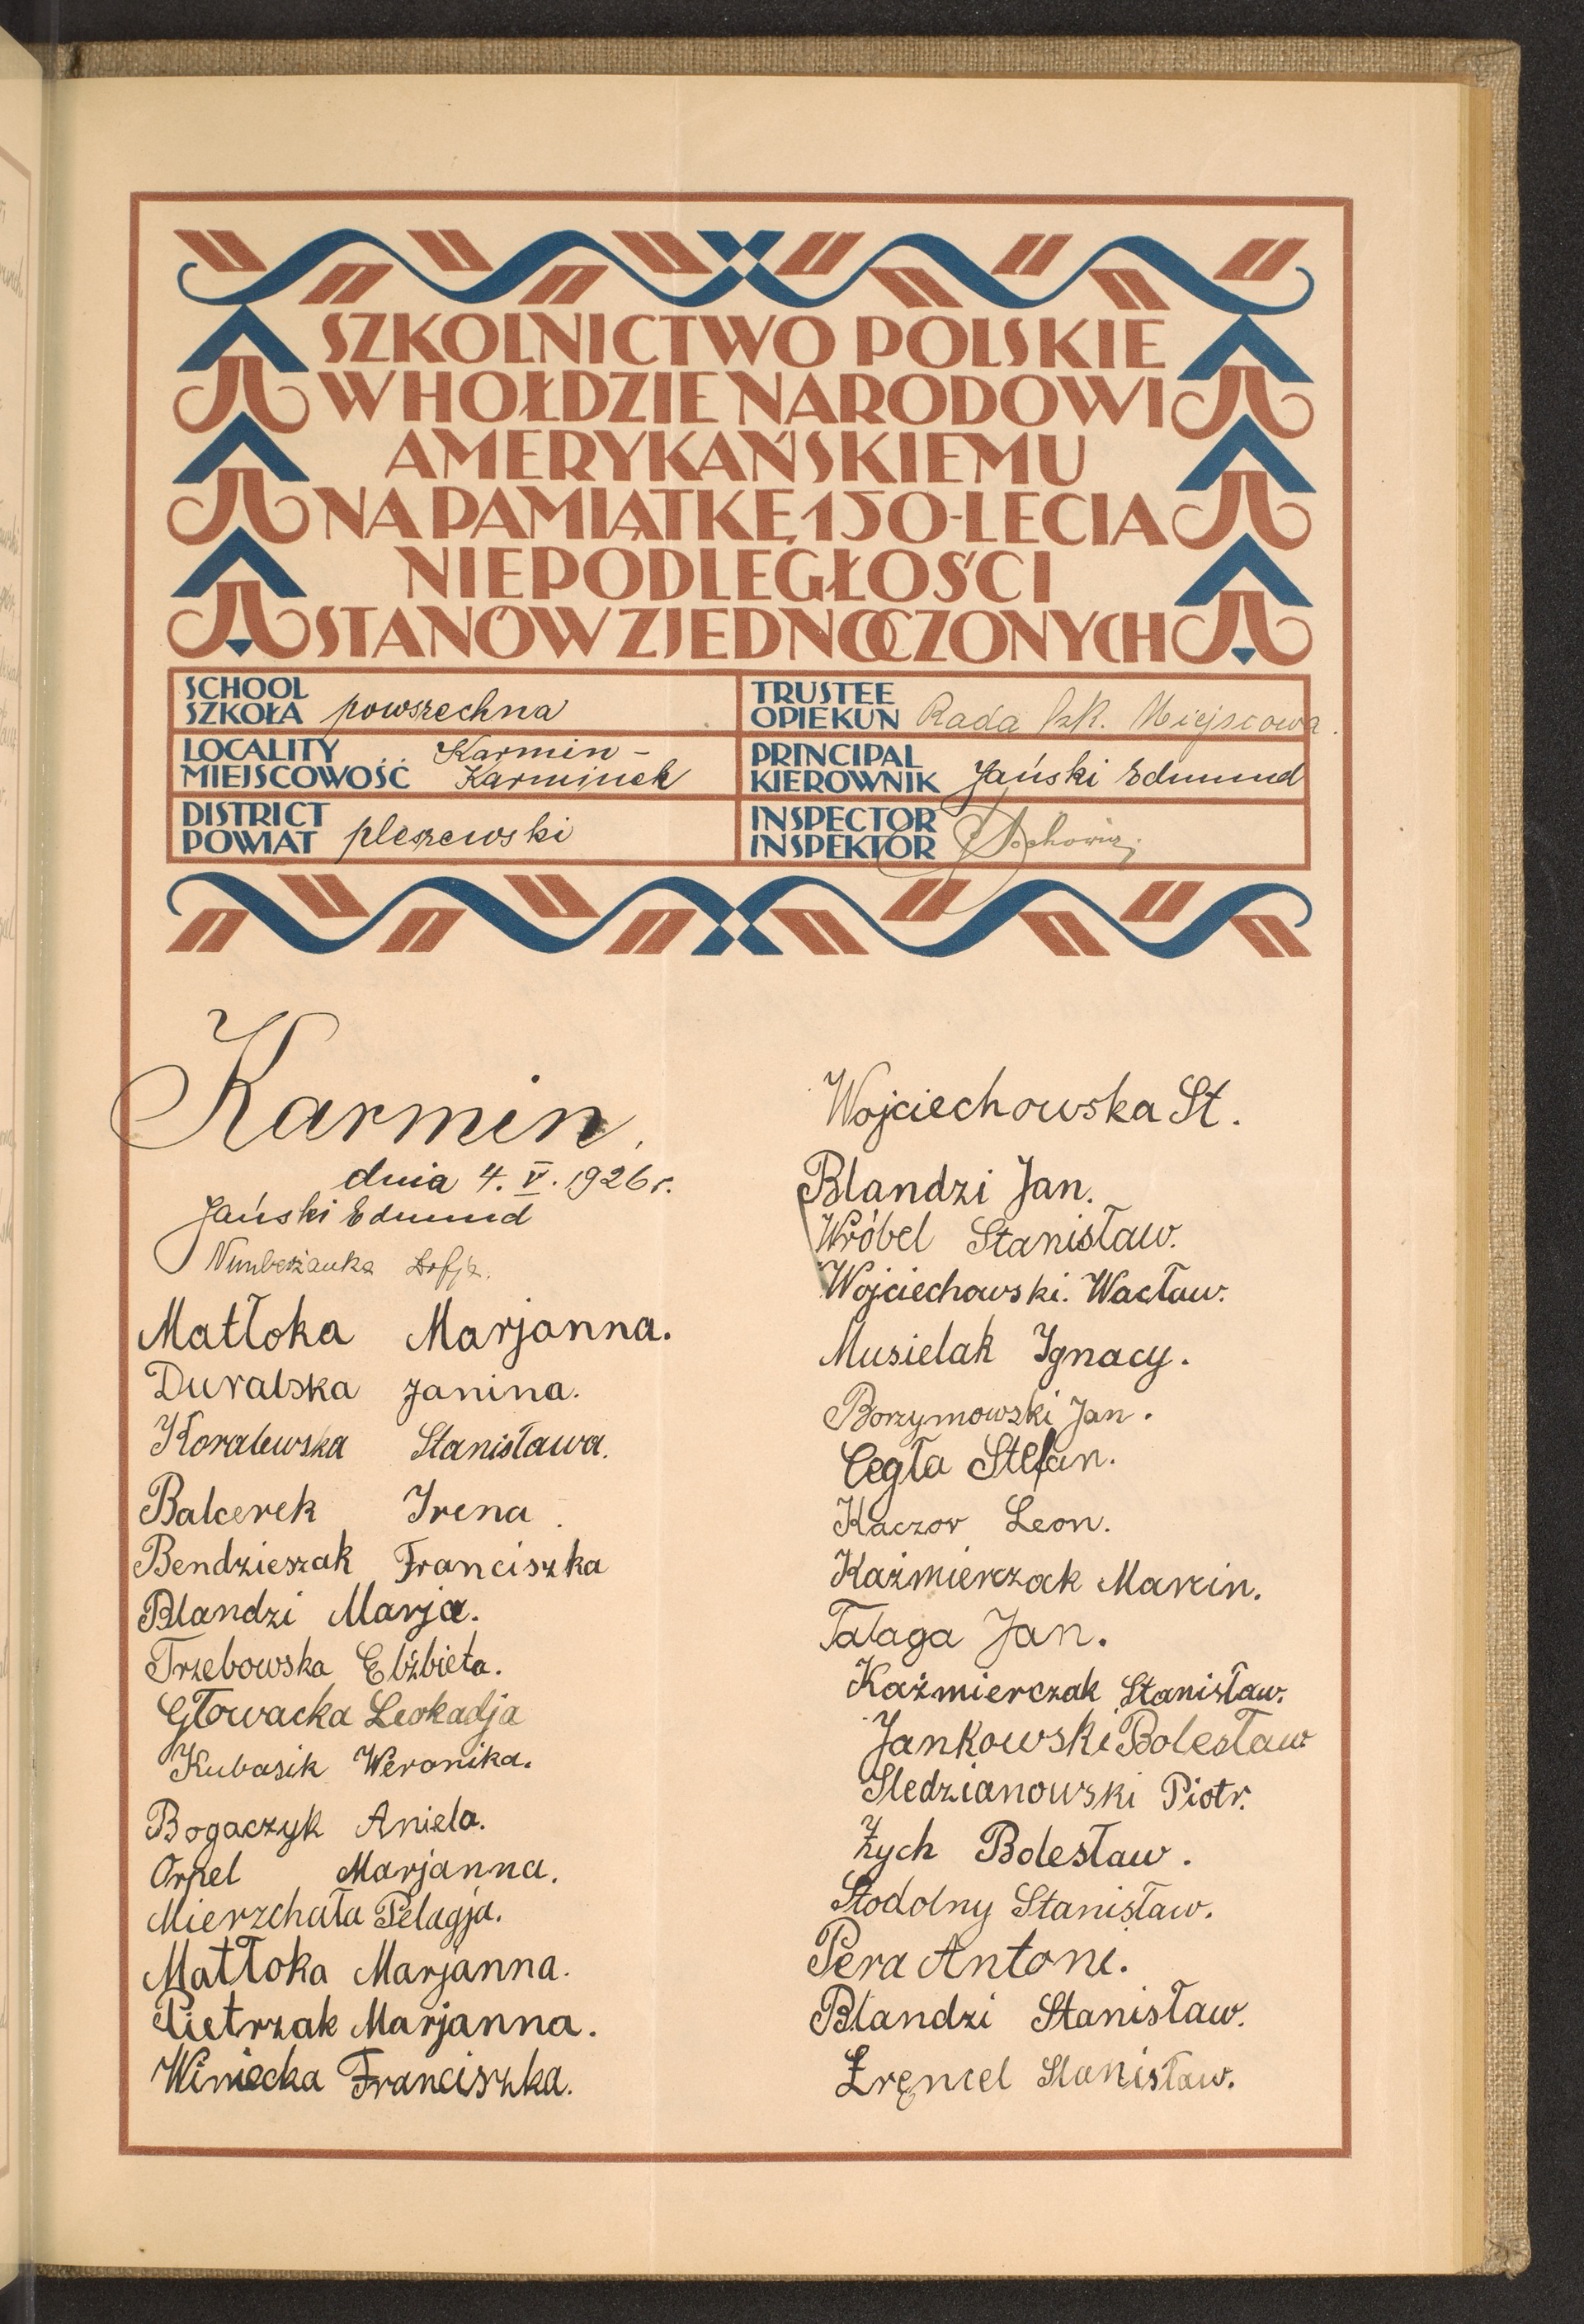 SZKOLNICTWO POLSKIE
W HOŁDZIE NARODOWI
AMERYKAŃSKIEMU
NA PAMIĄTKĘ 150-LECIA
NIEPODLEGŁOŚCI
STANÓW ZJEDNOCZONYCH
SCHOOL
SZKOŁA powszechna
LOCALITY Karmin -
MIEJSCOWOŚĆ Karminek
DISTRICT
POWIAT pleszewski
TRUSTEE
OPIEKUN Rada szk. Miejscowa.
PRINCIPAL
KIEROWNIK Jański Edmund
INSPECTOR
INSPEKTOR
Karmin,
dnia 4. V. 1926 r.
Jański Edmund
Zofja.
Matłoka Marjanna.
Duralska Janina.
Koralewska Stanisława.
Balcerek Irena.
Bendzieszak Franciszka
Blandzi Marja.
Trzebowska Elżbieta.
Głowacka Leokadja
Kubasik Weronika.
Bogaczyk Aniela.
Orpel Marjanna.
Mierzchała Pelagja.
Matłoka Marjanna.
Pietrzak Marjanna.
Winiecka Franciszka.
Wojciechowska St.
Blandzi Jan.
Wróbel Stanisław.
Wojciechowski. Wacław.
Musielak Ignacy.
Borzymowski Jan.
Cegła Stefan.
Kaczor Leon.
Kaźmierczak Marcin.
Talaga Jan.
Kaźmierczak Stanisław.
Jankowski Bolesław
Sledzianowski Piotr.
Zych Bolesław.
Stodolny Stanisław.
Pera Antoni.
Blandzi Stanisław.
Zręncel Stanisław.